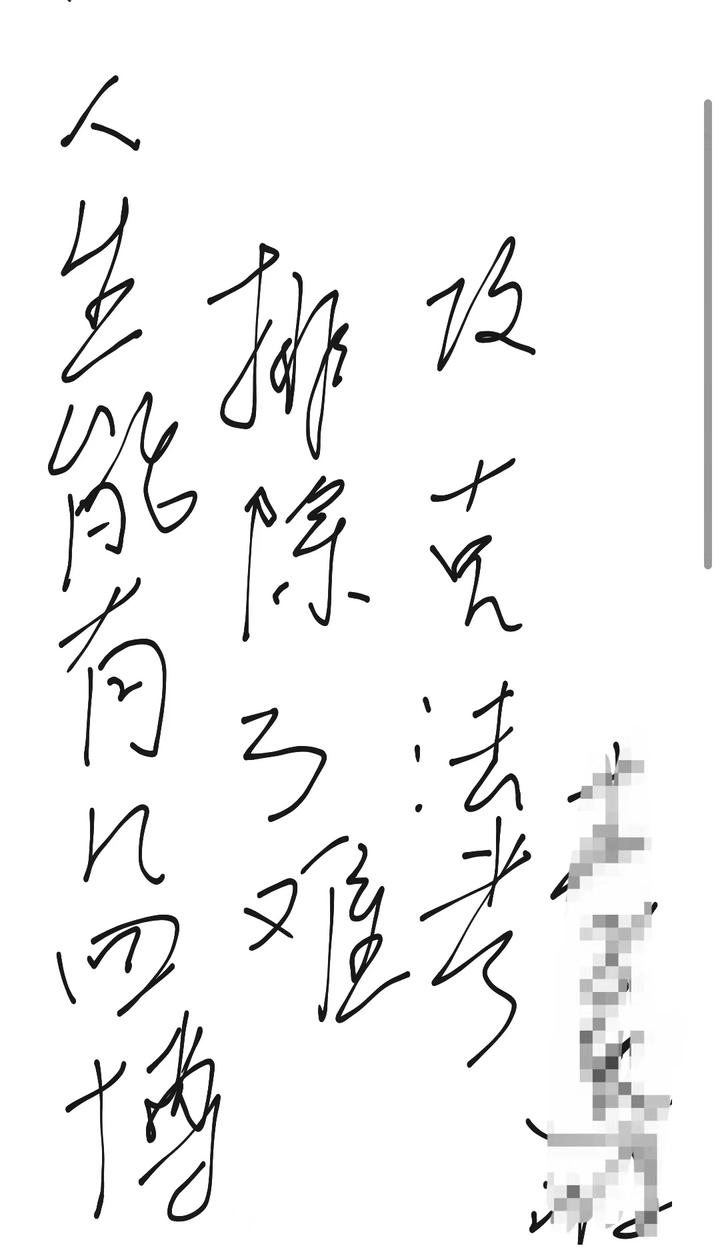 人生能有几回博
排除万难
攻克法考